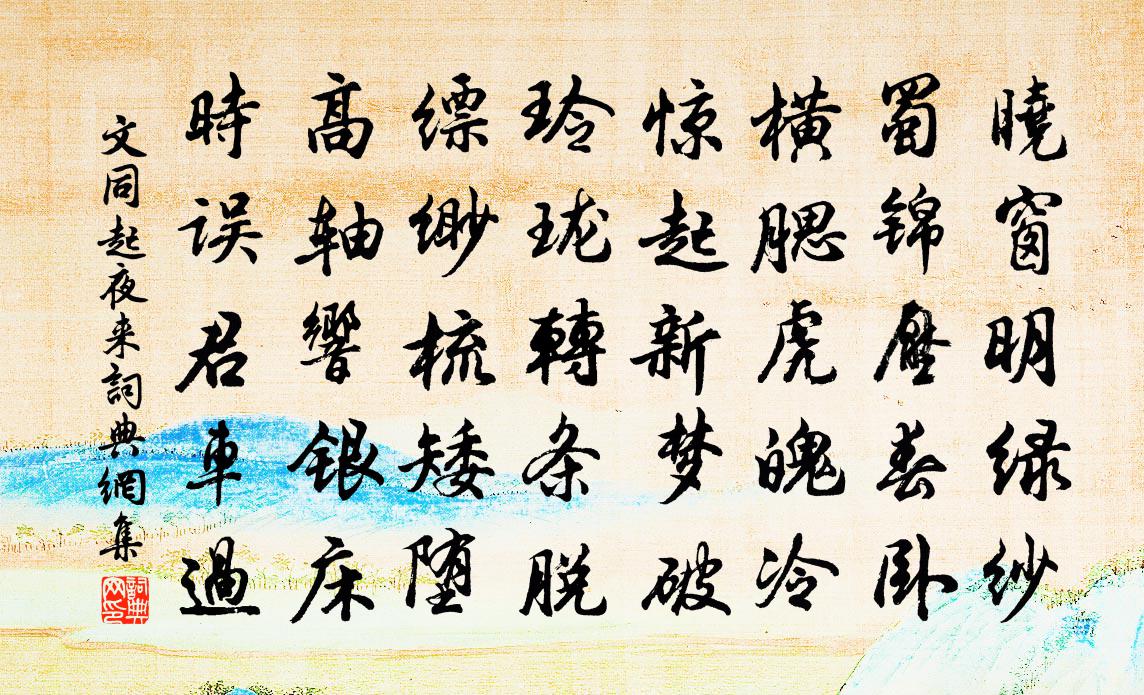 曉窗明绿纱
蜀锦壓春卧
横腮虎魄冷
惊起新梦破
玲珑轉条脱
缥缈梳矮堕
高轴響银床
時误君車過
文同起夜来詞典網集
詞典网印